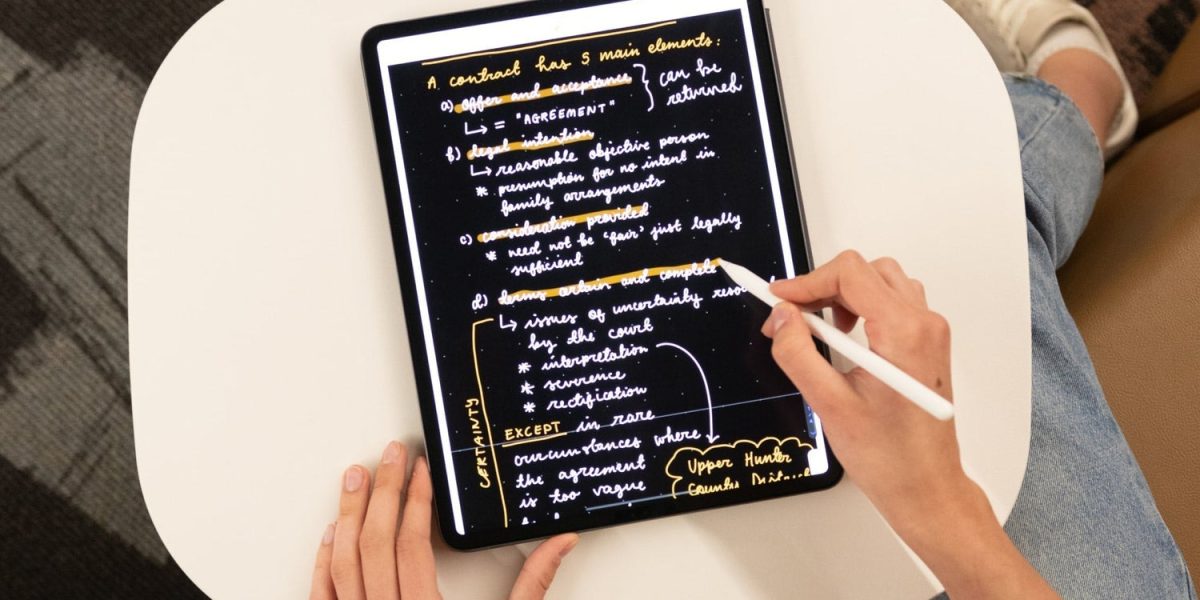 A contract has 5 main elements:
a) offer and acceptance } can be
↳ = "AGREEMENT" returned
b) legal intention
↳ reasonable objective person
* presumption for no intent in
family arrangements
c) consideration provided
* need not be 'fair' just legally
sufficient
d) terms certain and complete
↳ issues of uncertainty
by the court
* interpretation
* severence
* rectification
CERTAINTY
EXCEPT in rare
circumstances where
the agreement
is too vague
Upper Hunter
County